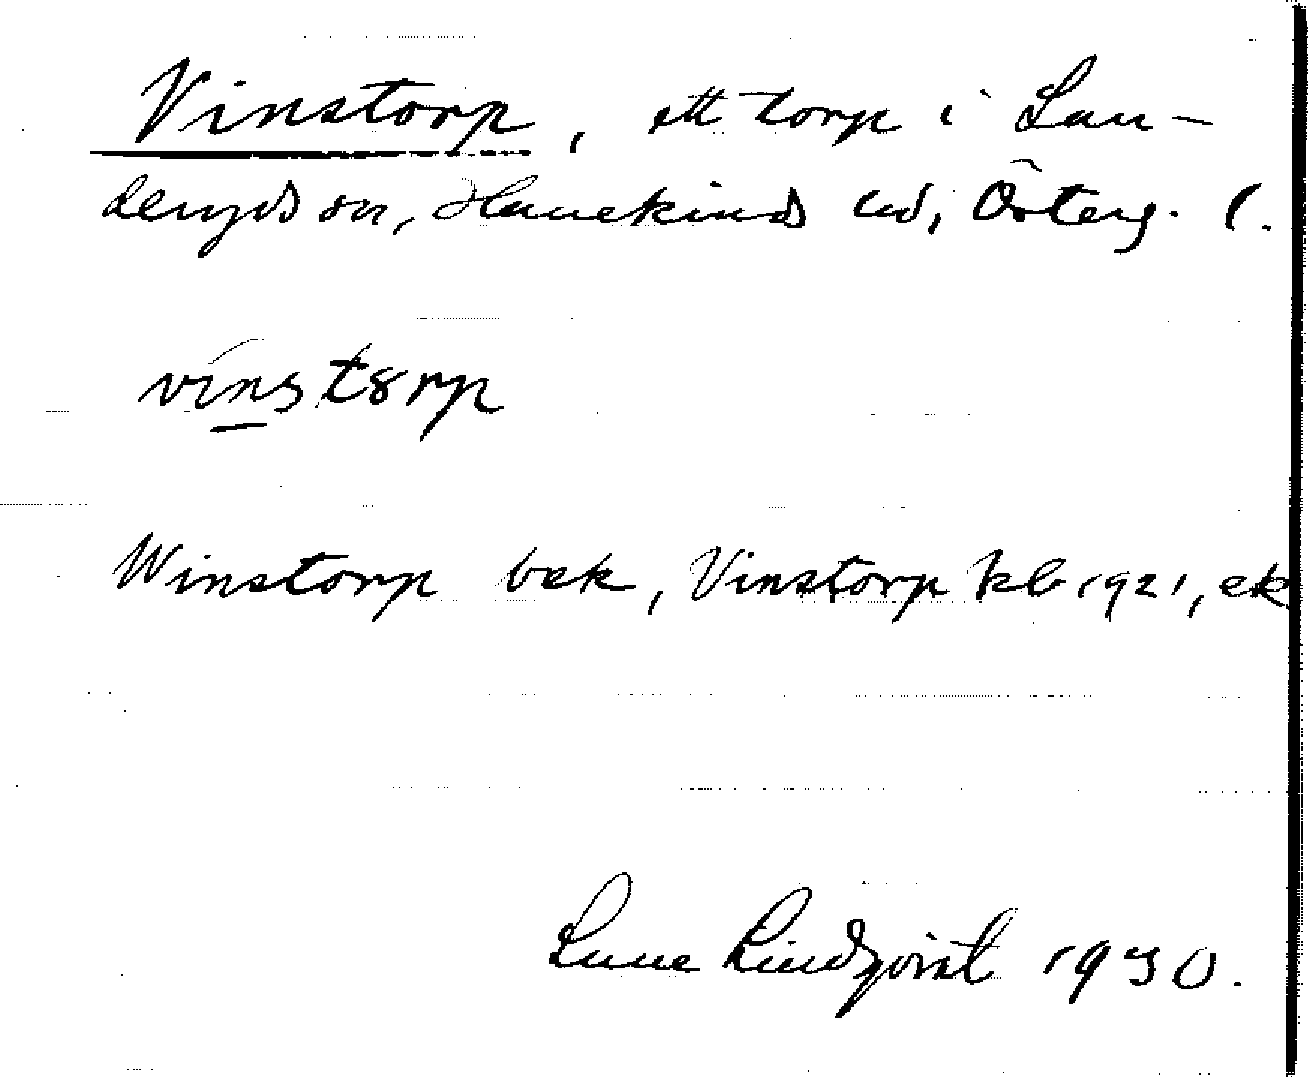 Vinstorp, ett torp i Lan-
deryds sn, Hanekinds hd, Österg. l.
vins tørp
Winstorp bek, Vinstorp kb 1921, ek
Sune Lindqvist 1930.